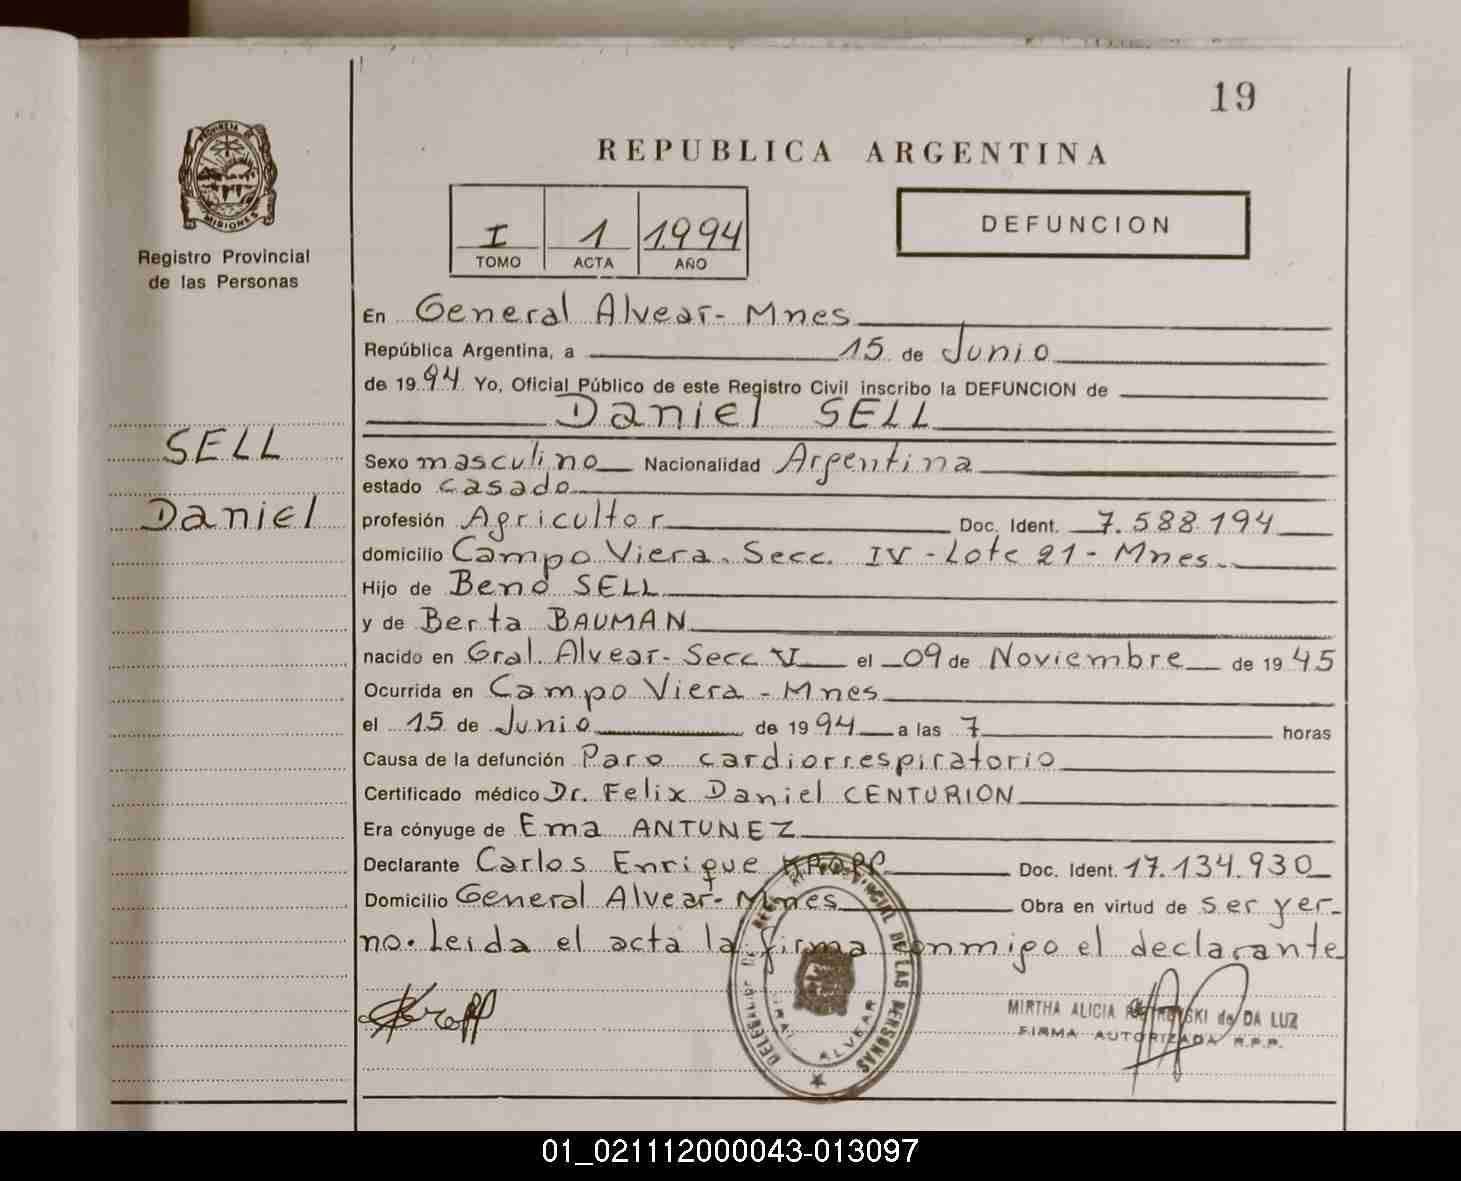 19
REPUBLICA ARGENTINA
PROVINCIA DE
MISIONES
Registro Provincial
de las Personas
I 1 1994
TOMO ACTA AÑO
DEFUNCION
En General Alvear - Mnes
República Argentina, a 15 de Junio
de 1994 Yo, Oficial Público de este Registro Civil inscribo la DEFUNCION de
Daniel SELL
SELL
Daniel
Sexo masculino Nacionalidad Argentina
estado casado
profesión Agricultor Doc. Ident. 7.588.194
domicilio Campo Viera. Secc. IV - Lote 21 - Mnes.
Hijo de Beno SELL
y de Berta BAUMAN
nacido en Gral. Alvear - Secc V el 09 de Noviembre de 1945
Ocurrida en Campo Viera - Mnes
el 15 de Junio de 1994 a las 7 horas
Causa de la defunción Paro cardiorrespiratorio
Certificado médico Dr. Felix Daniel CENTURION
Era cónyuge de Ema ANTUNEZ
Declarante Carlos Enrique KROPP Doc. Ident. 17.134.930
Domicilio General Alvear - Mnes Obra en virtud de ser yer-
no. Leida el acta la firma conmigo el declarante
Kropp
MIRTHA ALICIA de DA LUZ
FIRMA AUTORIZADA R.P.P.
DE LAS PERSONAS
ALVEAR
01_021112000043-013097